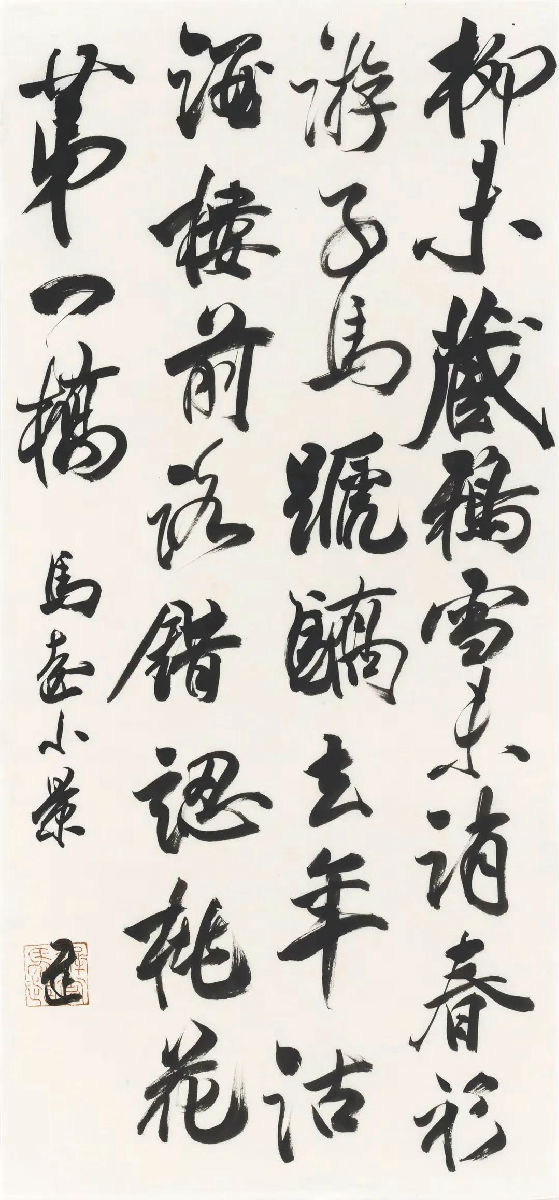 柳未藏鴉雪未消春衫
游子馬蹏驕去年沽
酒樓前路錯認桃花
第一橋
馬遠小景